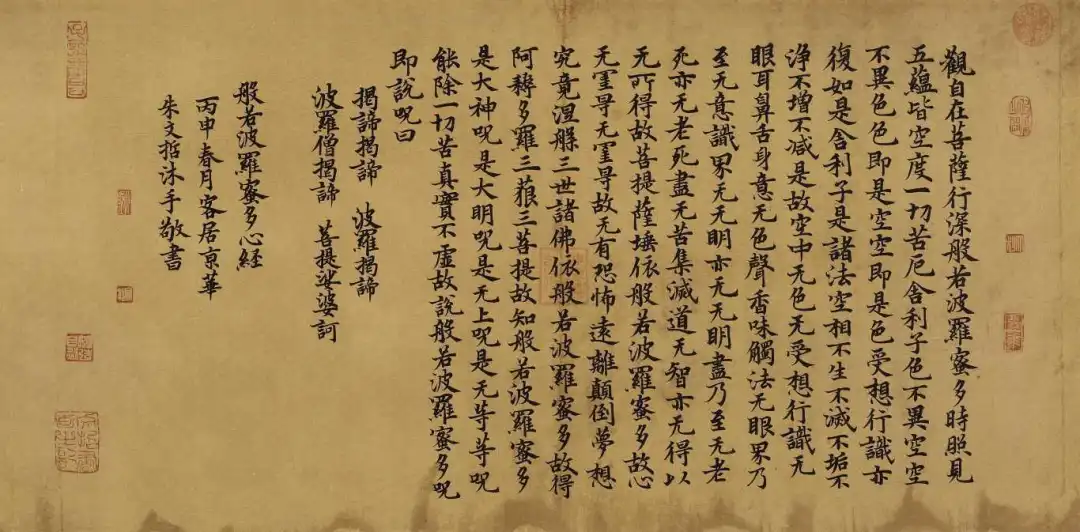 觀自在菩薩行深般若波羅蜜多時照見
五蘊皆空度一切苦厄舍利子色不異空空
不異色色即是空空即是色受想行識亦
復如是舍利子是諸法空相不生不滅不垢不
淨不增不減是故空中无色无受想行識无
眼耳鼻舌身意无色聲香味觸法无眼界乃
至无意識界无无明亦无无明盡乃至无老
死亦无老死盡无苦集滅道无智亦无得以
无所得故菩提薩埵依般若波羅蜜多故心
无罣㝵无罣㝵故无有恐怖遠離顛倒夢想
究竟涅槃三世諸佛依般若波羅蜜多故得
阿耨多羅三藐三菩提故知般若波羅蜜多
是大神呪是大明呪是无上呪是无等等呪
能除一切苦真實不虛故說般若波羅蜜多呪
即說呪曰
揭諦揭諦 波羅揭諦
波羅僧揭諦 菩提娑婆訶
般若波羅蜜多心経
丙申春月客居京華
朱文哲沐手敬書